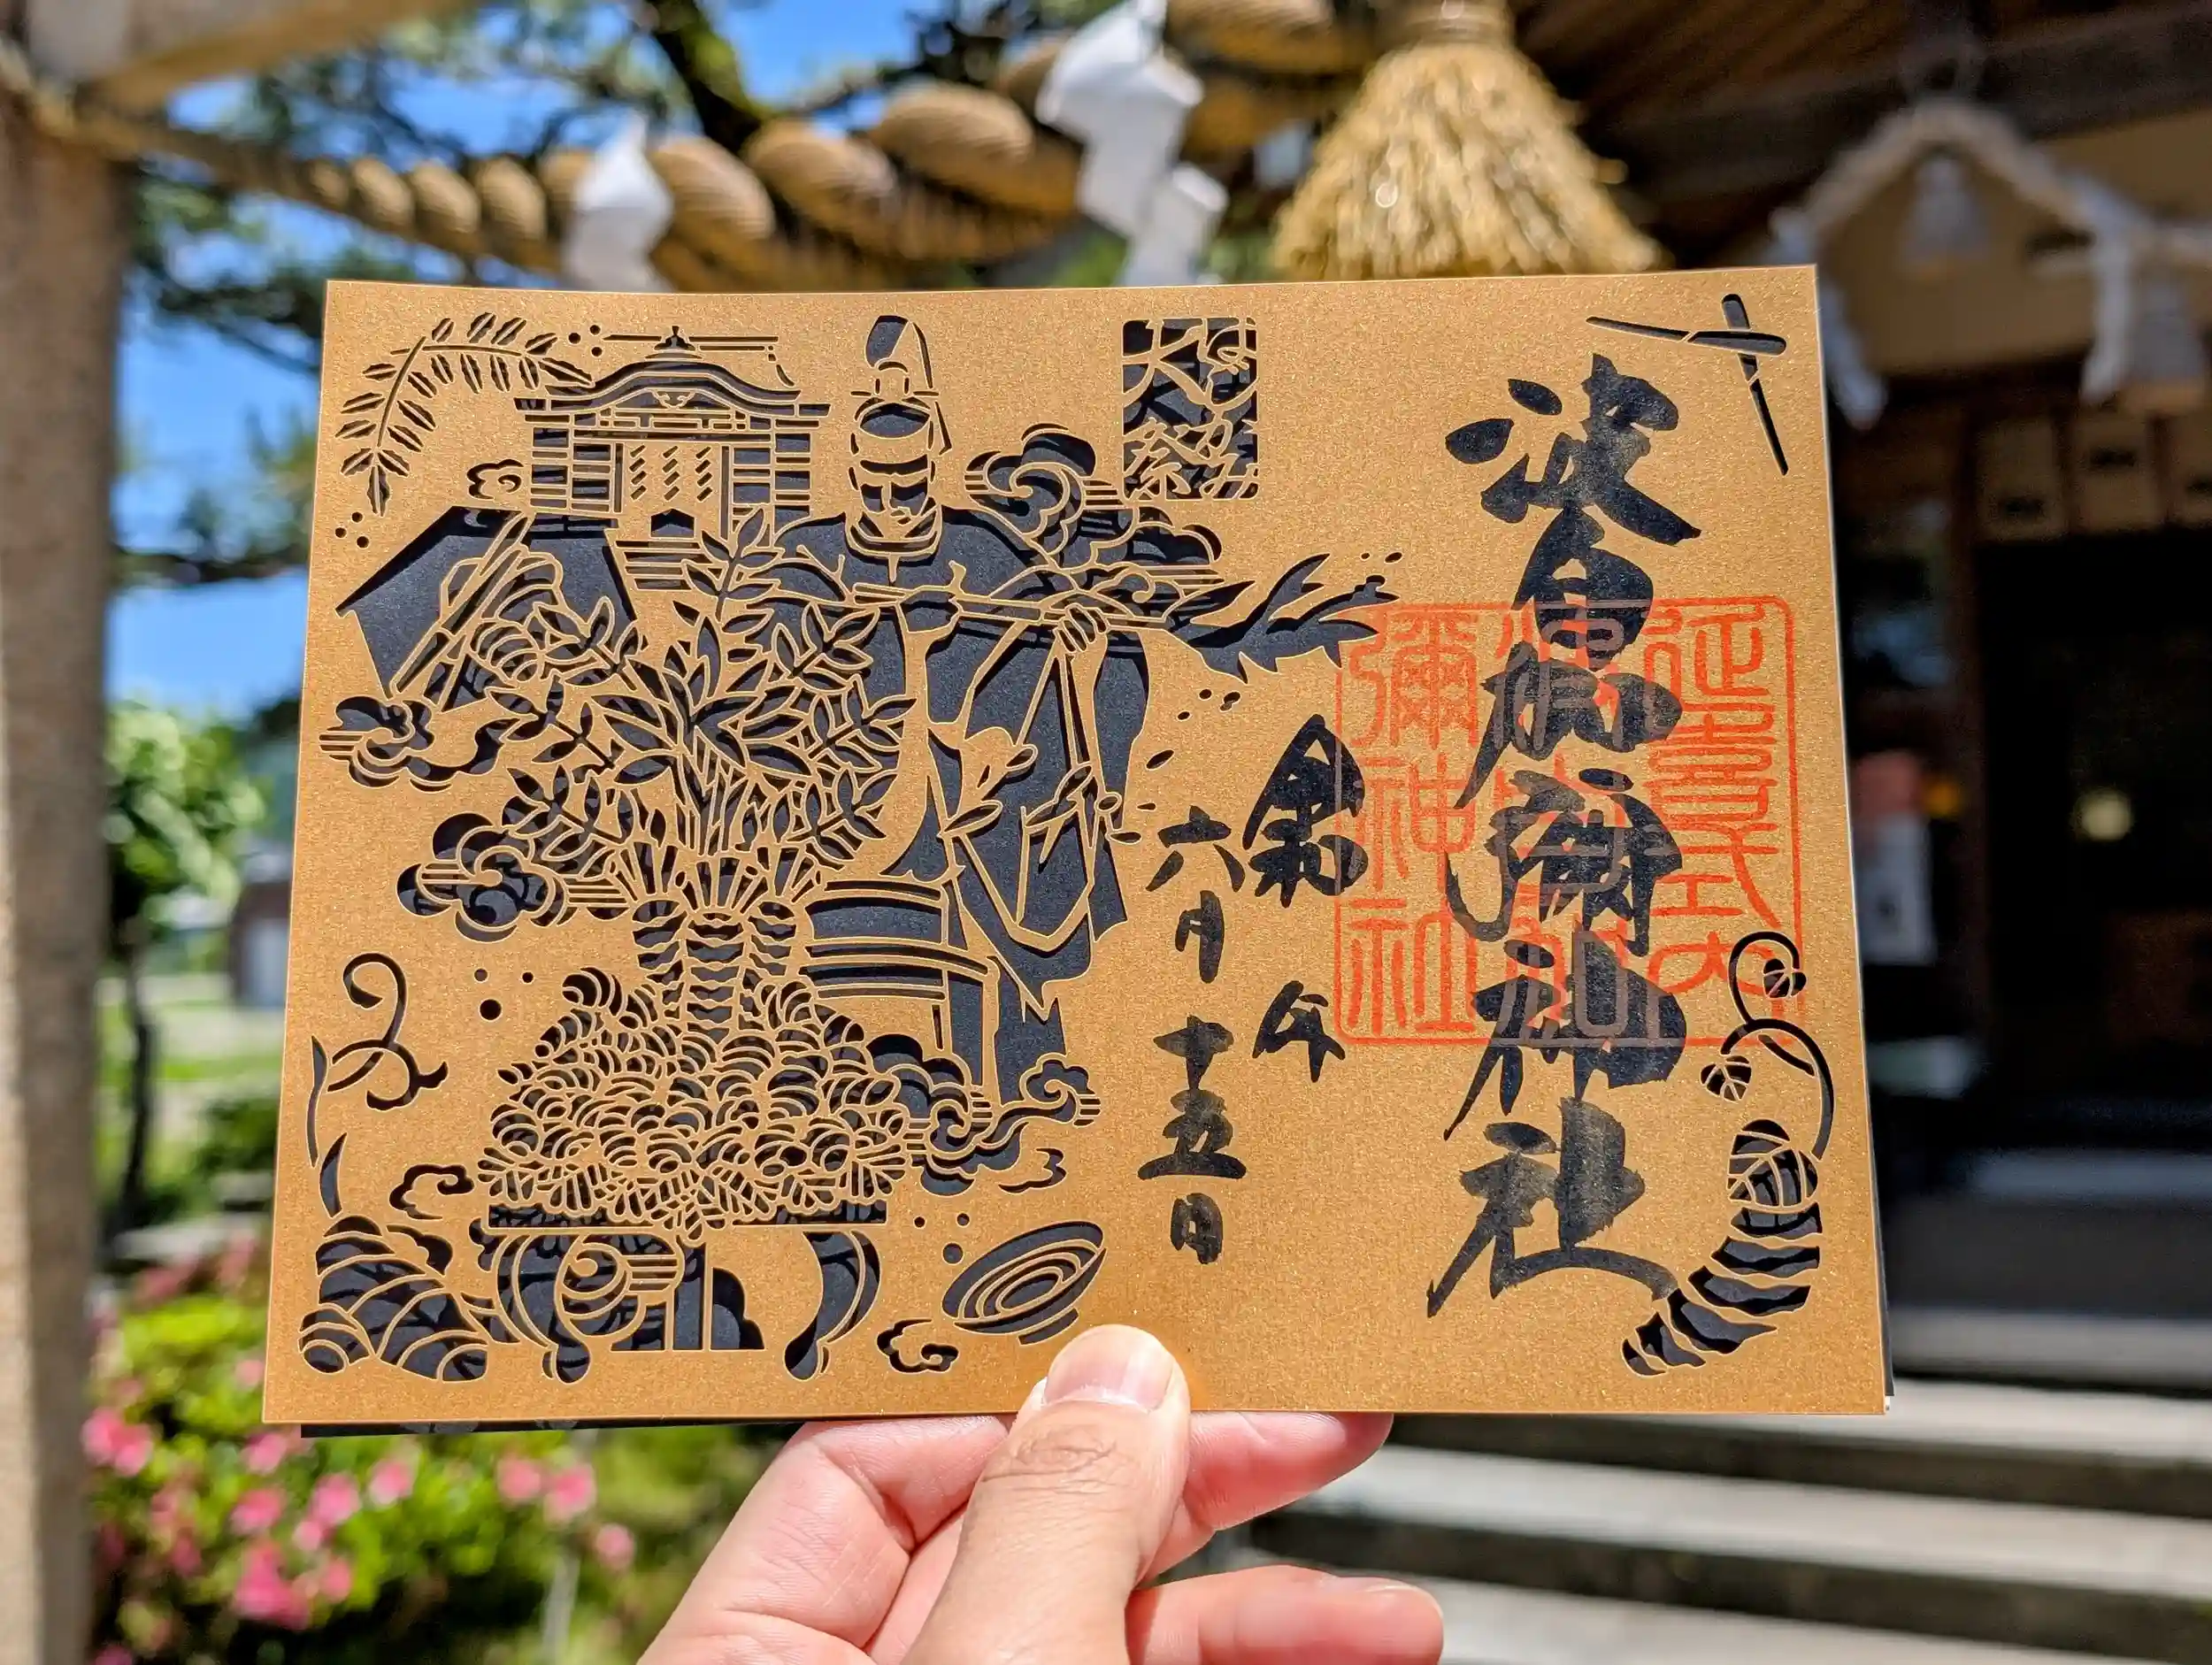 波自加彌神社
延喜式内
波自加
彌神社
令和
六月十五日
大祭